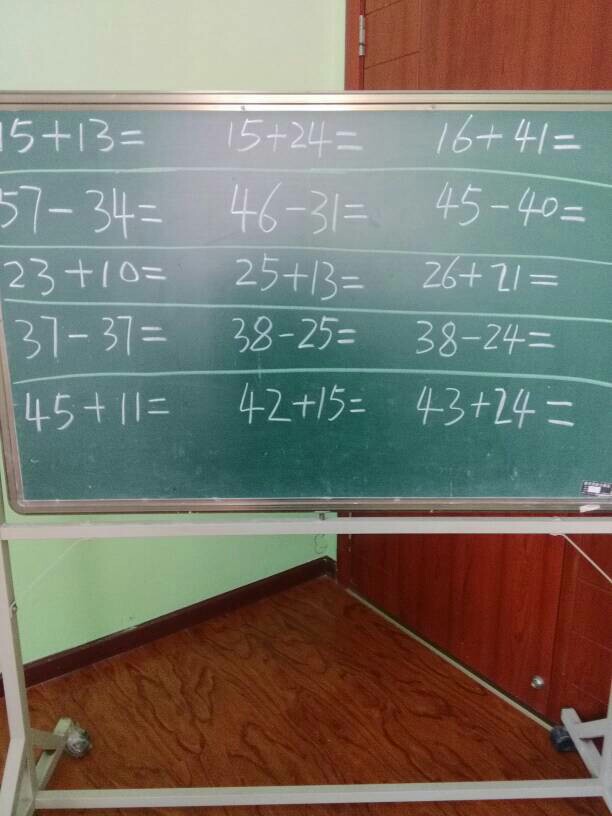 15+13= 15+24= 16+41=
57-34= 46-31= 45-40=
23+10= 25+13= 26+21=
37-37= 38-25= 38-24=
45+11= 42+15= 43+24=